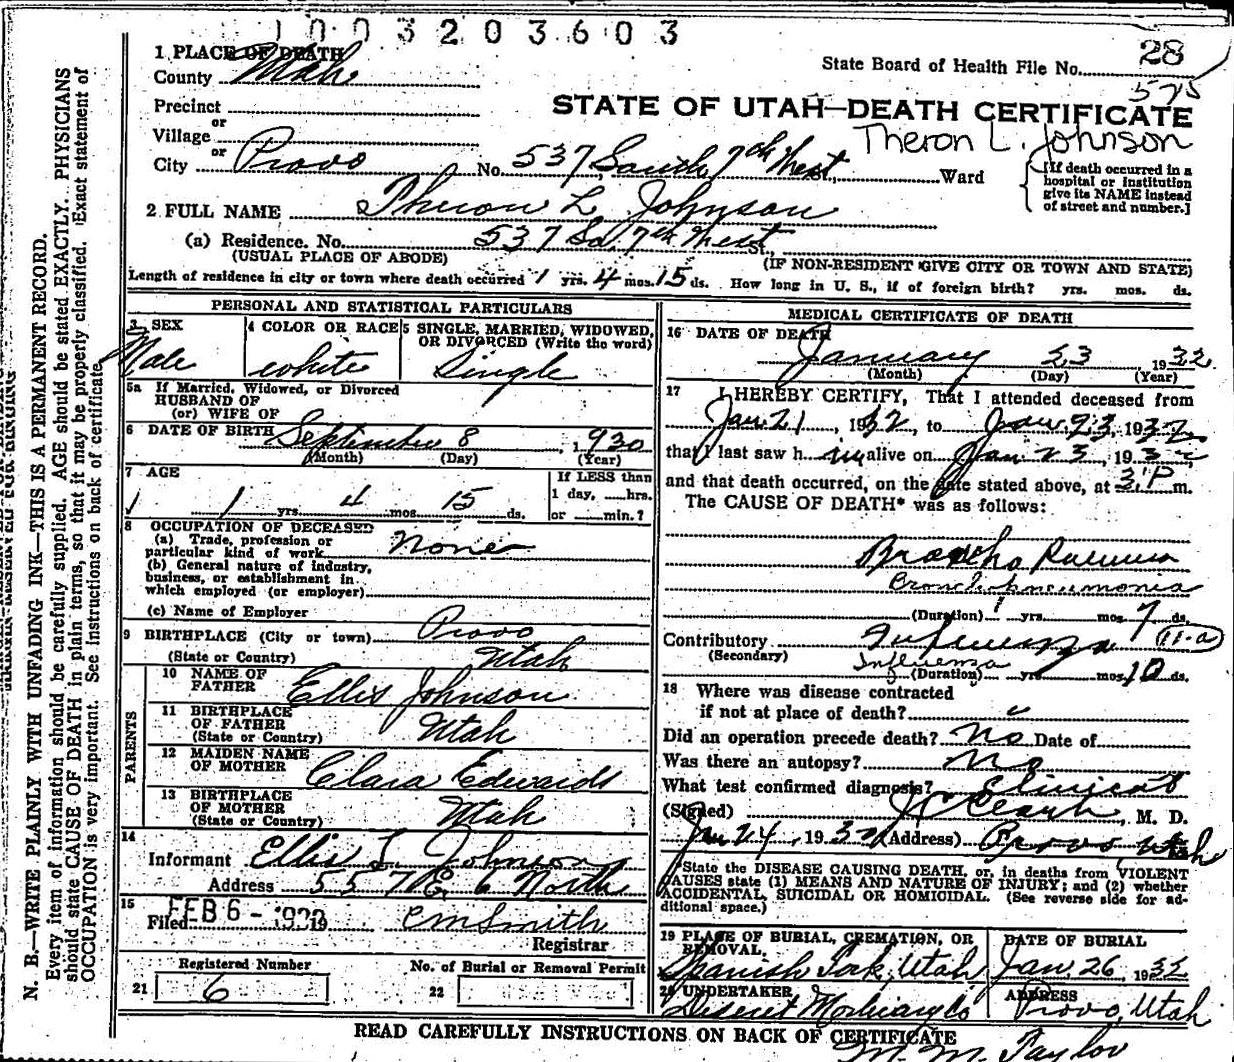 1003203603
1 PLACE OF DEATH
County Utah
State Board of Health File No. 28
575
Precinct
or
Village
or
City Provo No. 537 South 7th West St., Ward
STATE OF UTAH—DEATH CERTIFICATE
Theron L. Johnson
[If death occurred in a
hospital or institution
give its NAME instead
of street and number.]
2 FULL NAME Theron L Johnson
(a) Residence. No. 537 So. 7th West St.,
(USUAL PLACE OF ABODE)
(IF NON-RESIDENT GIVE CITY OR TOWN AND STATE)
Length of residence in city or town where death occurred 1 yrs. 4 mos. 15 ds. How long in U. S., if of foreign birth? yrs. mos. ds.
PERSONAL AND STATISTICAL PARTICULARS
3 SEX
Male
4 COLOR OR RACE
white
5 SINGLE, MARRIED, WIDOWED,
OR DIVORCED (Write the word)
Single
5a If Married, Widowed, or Divorced
HUSBAND OF
(or) WIFE OF
6 DATE OF BIRTH September 8, 1930
(Month) (Day) (Year)
7 AGE
1 1 yrs. 4 mos. 15 ds.
If LESS than
1 day, hrs.
or min.?
8 OCCUPATION OF DECEASED
(a) Trade, profession or
particular kind of work None
(b) General nature of industry,
business, or establishment in
which employed (or employer)
(c) Name of Employer
9 BIRTHPLACE (City or town) Provo
(State or Country) Utah
PARENTS
10 NAME OF
FATHER Ellis Johnson
11 BIRTHPLACE
OF FATHER
(State or Country) Utah
12 MAIDEN NAME
OF MOTHER Clara Edwards
13 BIRTHPLACE
OF MOTHER
(State or Country) Utah
14
Informant Ellis L Johnson
Address 557 6 North
15
Filed FEB 6 - 19 C M Smith
Registrar
Registered Number
21 6
No. of Burial or Removal Permit
22
MEDICAL CERTIFICATE OF DEATH
16 DATE OF DEATH
January 23 1932
(Month) (Day) (Year)
17 I HEREBY CERTIFY, That I attended deceased from
Jan 21, 1932, to Jan 23, 1932
that I last saw him alive on Jan 23, 1932
and that death occurred, on the date stated above, at 3 P m.
The CAUSE OF DEATH* was as follows:
Broncho Pneumonia
Bronchopneumonia
(Duration) yrs. mos. 7 ds.
Contributory Influenza 11-a
(Secondary) Influenza
(Duration) yrs. mos. 10 ds.
18 Where was disease contracted
if not at place of death?
Did an operation precede death? No Date of
Was there an autopsy? No
What test confirmed diagnosis? Clinical
(Signed) M. D.
Jan 24, 1932 (Address) Provo, Utah
*State the DISEASE CAUSING DEATH, or, in deaths from VIOLENT
CAUSES state (1) MEANS AND NATURE OF INJURY; and (2) whether
ACCIDENTAL, SUICIDAL OR HOMICIDAL. (See reverse side for ad-
ditional space.)
19 PLACE OF BURIAL, CREMATION, OR
REMOVAL.
Spanish Fork, Utah
DATE OF BURIAL
Jan 26, 1932
20 UNDERTAKER
Deseret Mortuary Co
ADDRESS
Provo, Utah
READ CAREFULLY INSTRUCTIONS ON BACK OF CERTIFICATE
M. M. Taylor
N. B.—WRITE PLAINLY WITH UNFADING INK—THIS IS A PERMANENT RECORD.
Every item of information should be carefully supplied. AGE should be stated EXACTLY. PHYSICIANS
should state CAUSE OF DEATH in plain terms, so that it may be properly classified. Exact statement of
OCCUPATION is very important. See instructions on back of certificate.